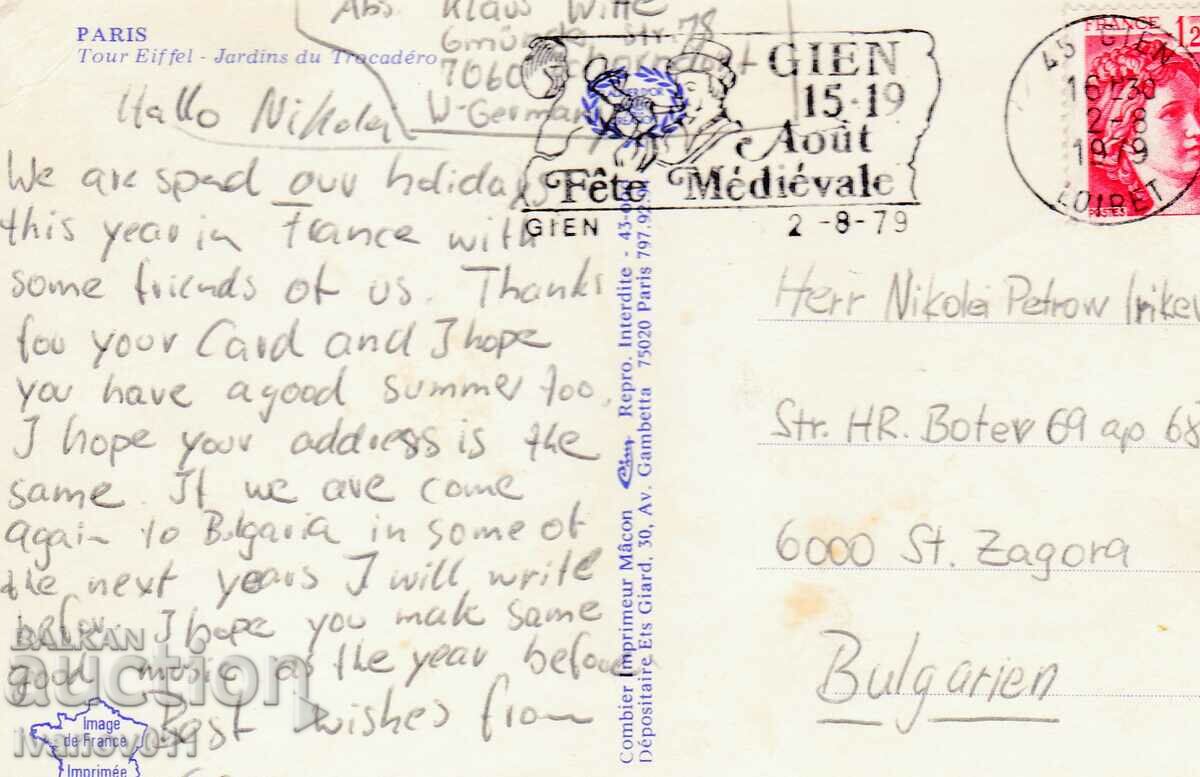 PARIS
Tour Eiffel - Jardins du Trocadéro
Abs. Klaus Witte
Gmünder Str. 78
7060
W-Germany
Hallo Nikolaj
We are spend our holidays
this year in France with
some friends of us. Thanks
fou your Card and I hope
you have a good summer too.
I hope your address is the
same. If we are come
again to Bulgaria in some of
the next years I will write
before. I hope you make same
good music as the year before
Best wishes from
GIEN
15-19
Août
Fête Médiévale
GIEN 2-8-79
45 GIEN
16H30
2-8
1979
LOIRET
FRANCE 1,20
POSTES
Herr Nikolei Petrow Irike
Str. HR. Botev 69 ap 68
6000 St. Zagora
Bulgarien
Combier Imprimeur Mâcon Cim Repro. Interdite - 43-0
Dépositaire Ets Giard, 30, Av. Gambetta 75020 Paris 797.92.
Image
de France
Imprimée
BALKAN
auction